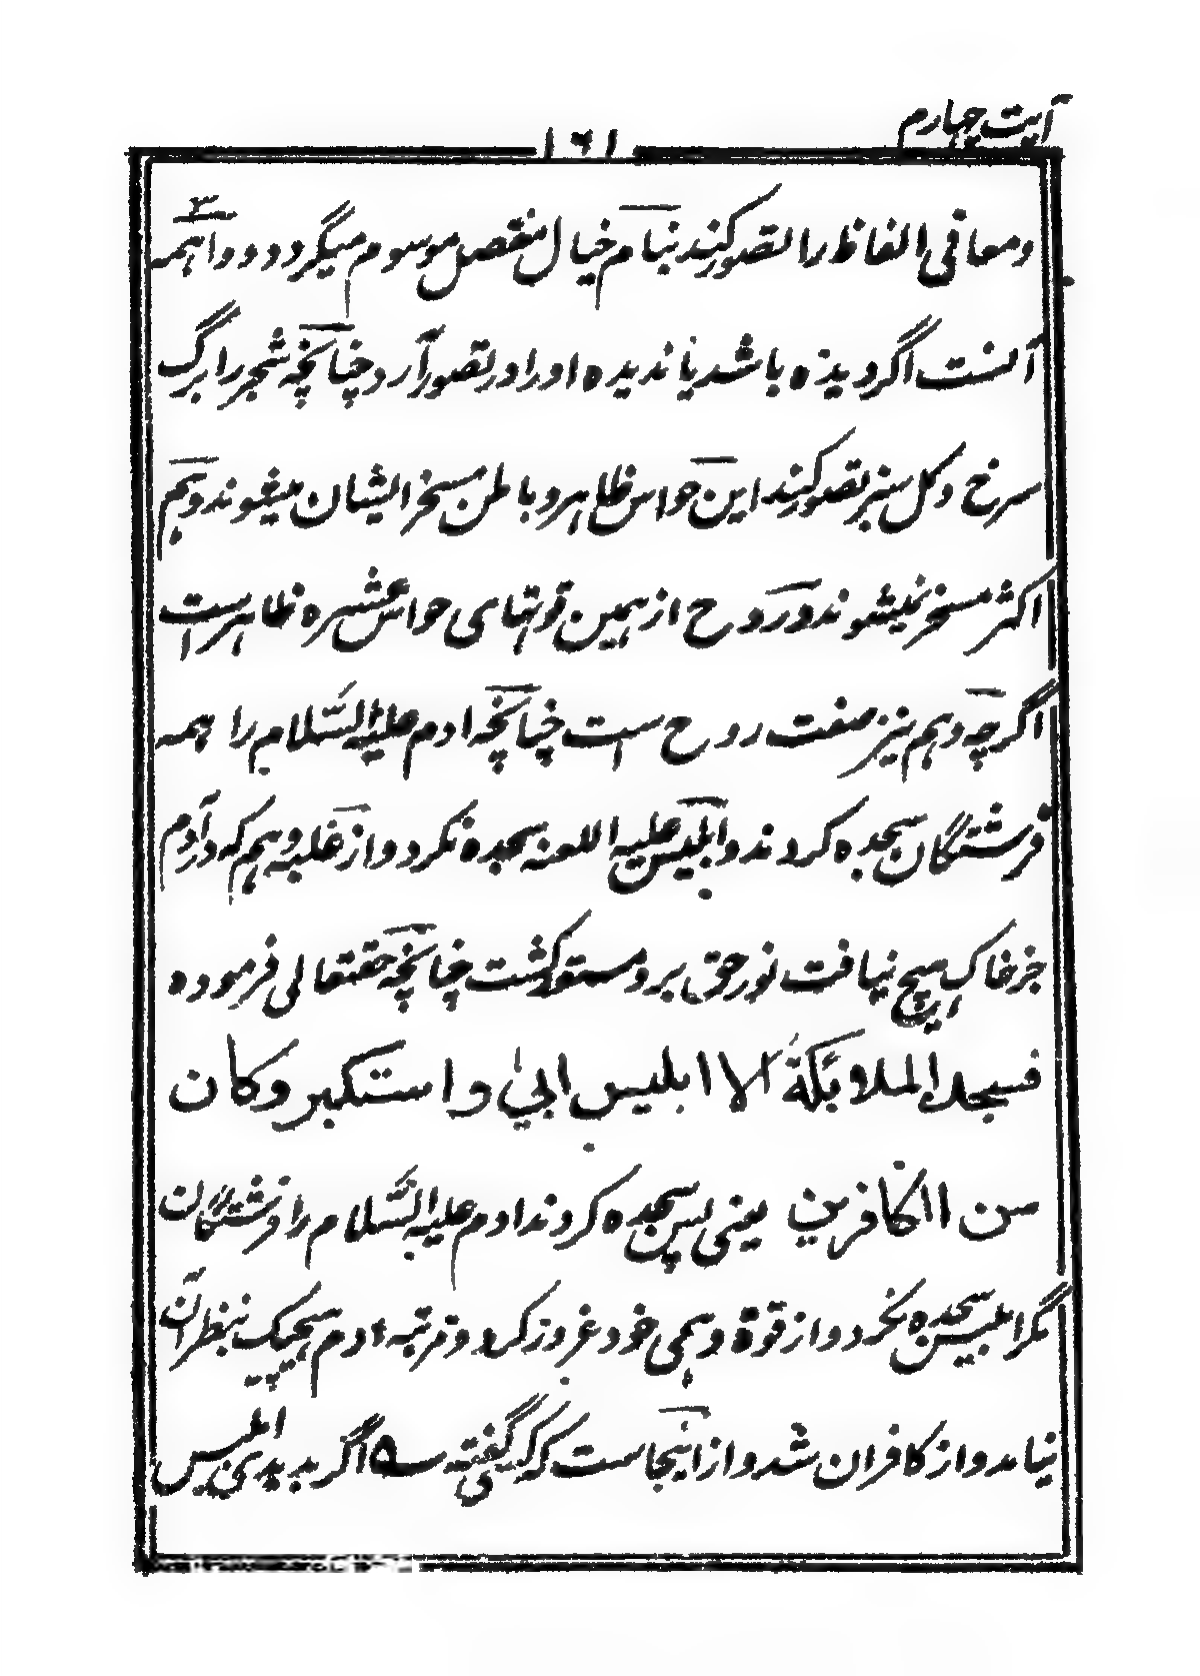 آیت چہارم
۱۶۱
ومعانی الفاظ را تصور کنند بنام خیال منفصل موسوم میگردد و واہمہ ۳
آنست اگر دیدہ باشد یا ندیدہ اورا در تصور آرد چنانچہ شجر را برگ
سرخ و گل سبز تصور کنند این حواس ظاہر و باطن مسخر ایشان میشوند و وہم
اکثر مسخر نمیشوند و روح از ہمین قوتہای حواس عشرہ ظاہر است
اگرچہ وہم نیز صفت روح ست چنانچہ ادم علیہ السَّلام را ہمہ
فرشتگان سجدہ کردند و ابلیس علیہ اللعنہ سجدہ نکرد و از غلبہ وہم کہ در آدم
جز خاک ہیچ نیافت نور حق برو مستور گشت چنانچہ حقتعالی فرمودہ
فسجد الملائکۃ الا ابلیس ابیٰ و استکبر وکان
من الکافرین یعنی پس سجدہ کردند ادم علیہ السَّلام را فرشتگان
مگر ابلیس سجدہ نکرد و از قوۃ وہمی خود غرور کرد و مرتبہ ادم ہیچیک بنظر آن
نیامد و از کافران شد و از اینجاست کہ گفتہ ؎ اگر بدیدی ابلیس